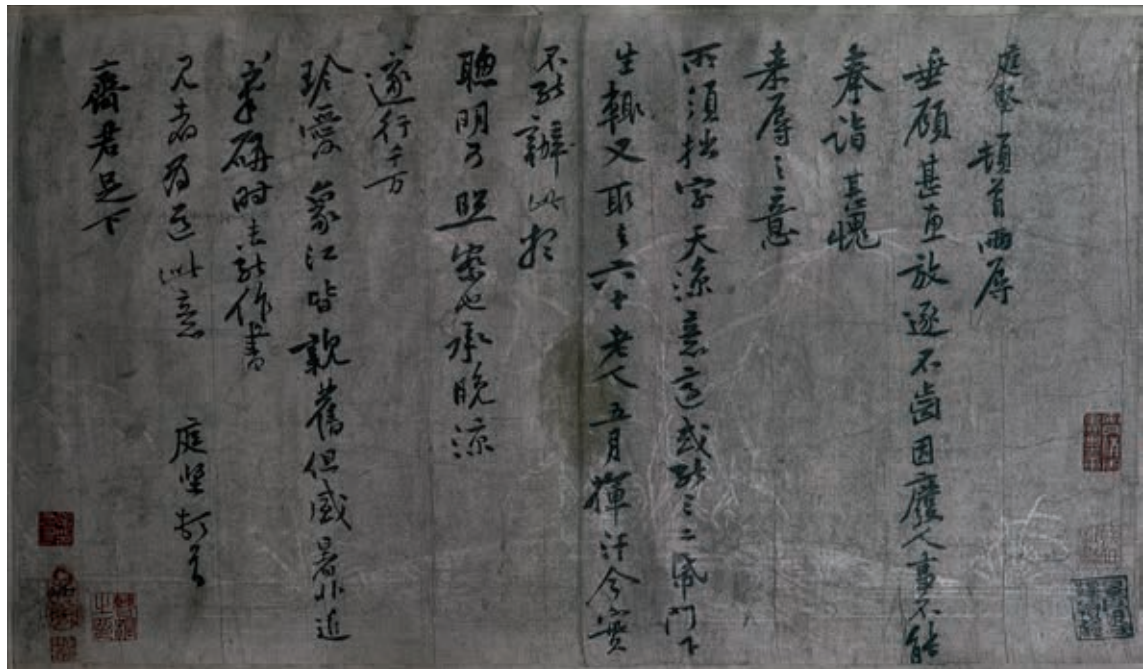 庭堅頓首兩辱
垂顧甚惠放逐不齒因廢人事不能
奉詣甚愧
来辱之意
所須拙字天凉意適或能三二帋門下
生輒又取之六十老人五月揮汗今實
不能辦此想
聰明可照察也承晚凉
遂行千万
珍愛象江皆親舊但盛暑非近
筆硯時未能作書
見者為道此意 庭堅頓首
齊君足下